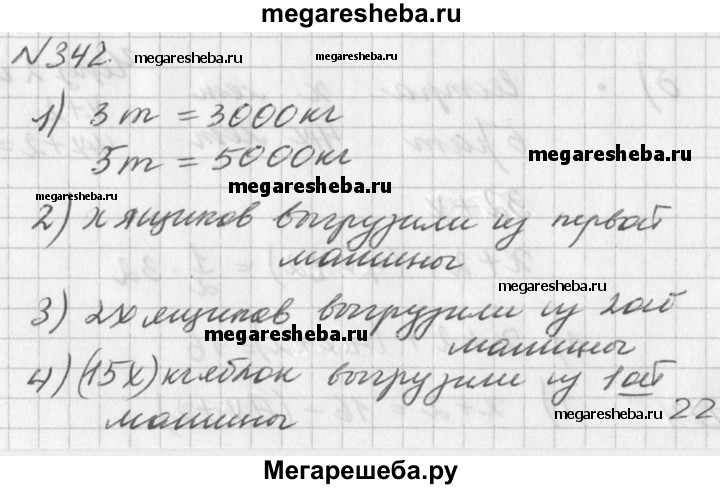 megaresheba.ru
№342. megaresheba.ru megaresheba.ru
1) 3 т = 3000 кг
5 т = 5000 кг megaresheba.ru
megaresheba.ru megaresheba.ru
2) х ящиков выгрузили из первой
машины
megaresheba.ru
3) 2х ящиков выгрузили из 2ой
megaresheba.ru машины
4) (15х) кг яблок выгрузили из 1ой
машины megaresheba.ru 22
Мегарешеба.ру